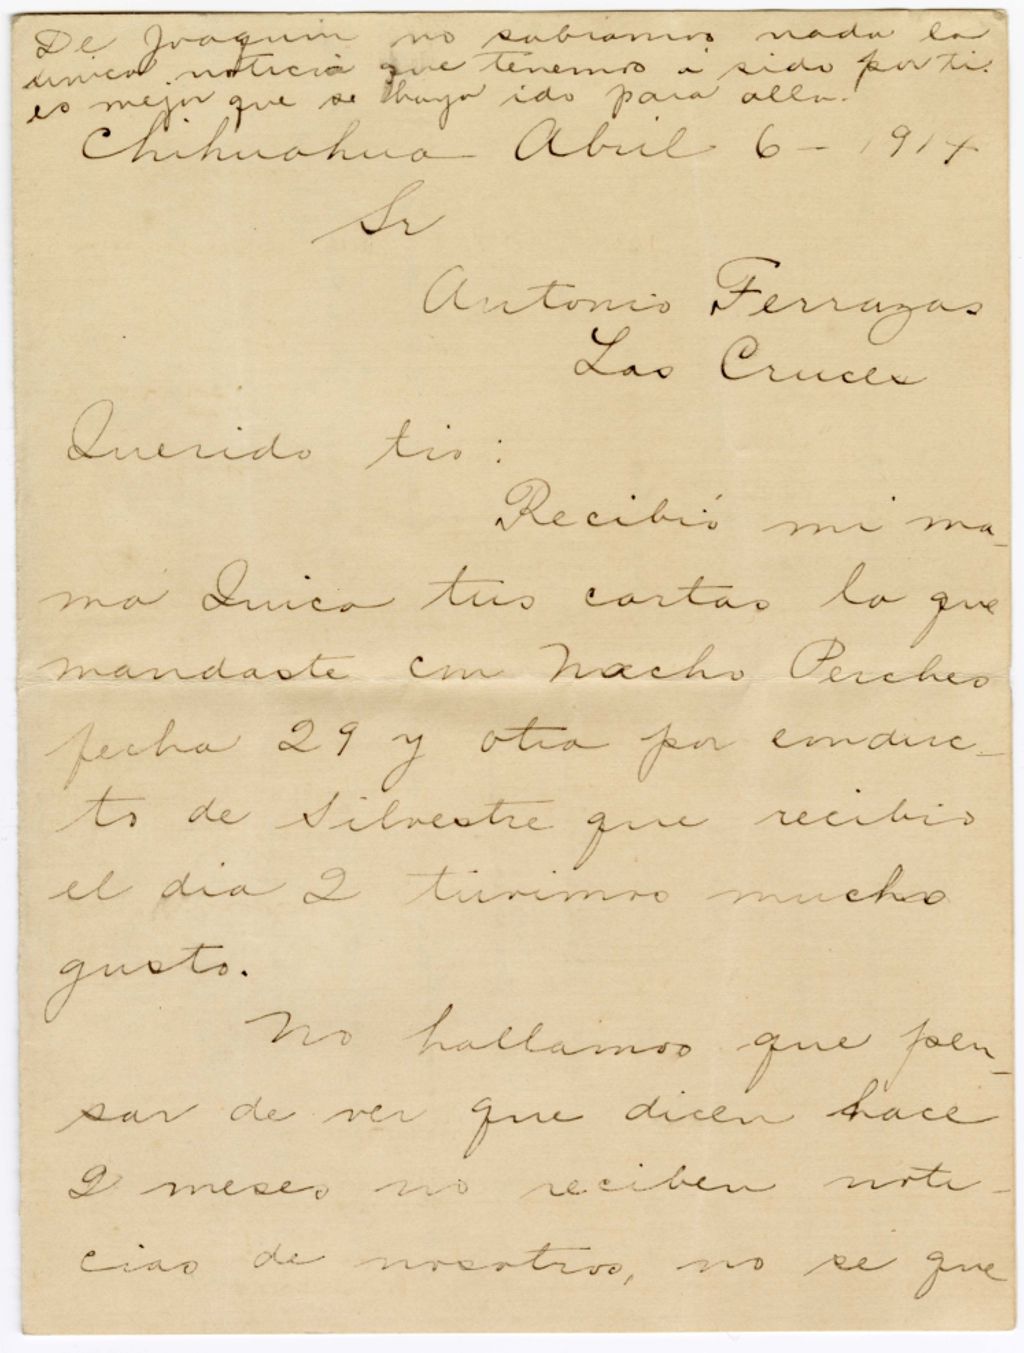 De Joaquin no sabiamos nada la
unica noticia que tenemos a sido por ti.
es mejor que se haya ido para alla.
Chihuahua Abril 6 - 1914
Sr
Antonio Terrazas
Las Cruces
Querido tio:
Recibió mi ma-
ma Quica tus cartas la que
mandaste con Nacho Perches
fecha 29 y otra por conduc-
to de Silvestre que recibio
el dia 2 tuvimos mucho
gusto.
No hallamos que pen-
sar de ver que dicen hace
2 meses no reciben noti-
cias de nosotros, no se que